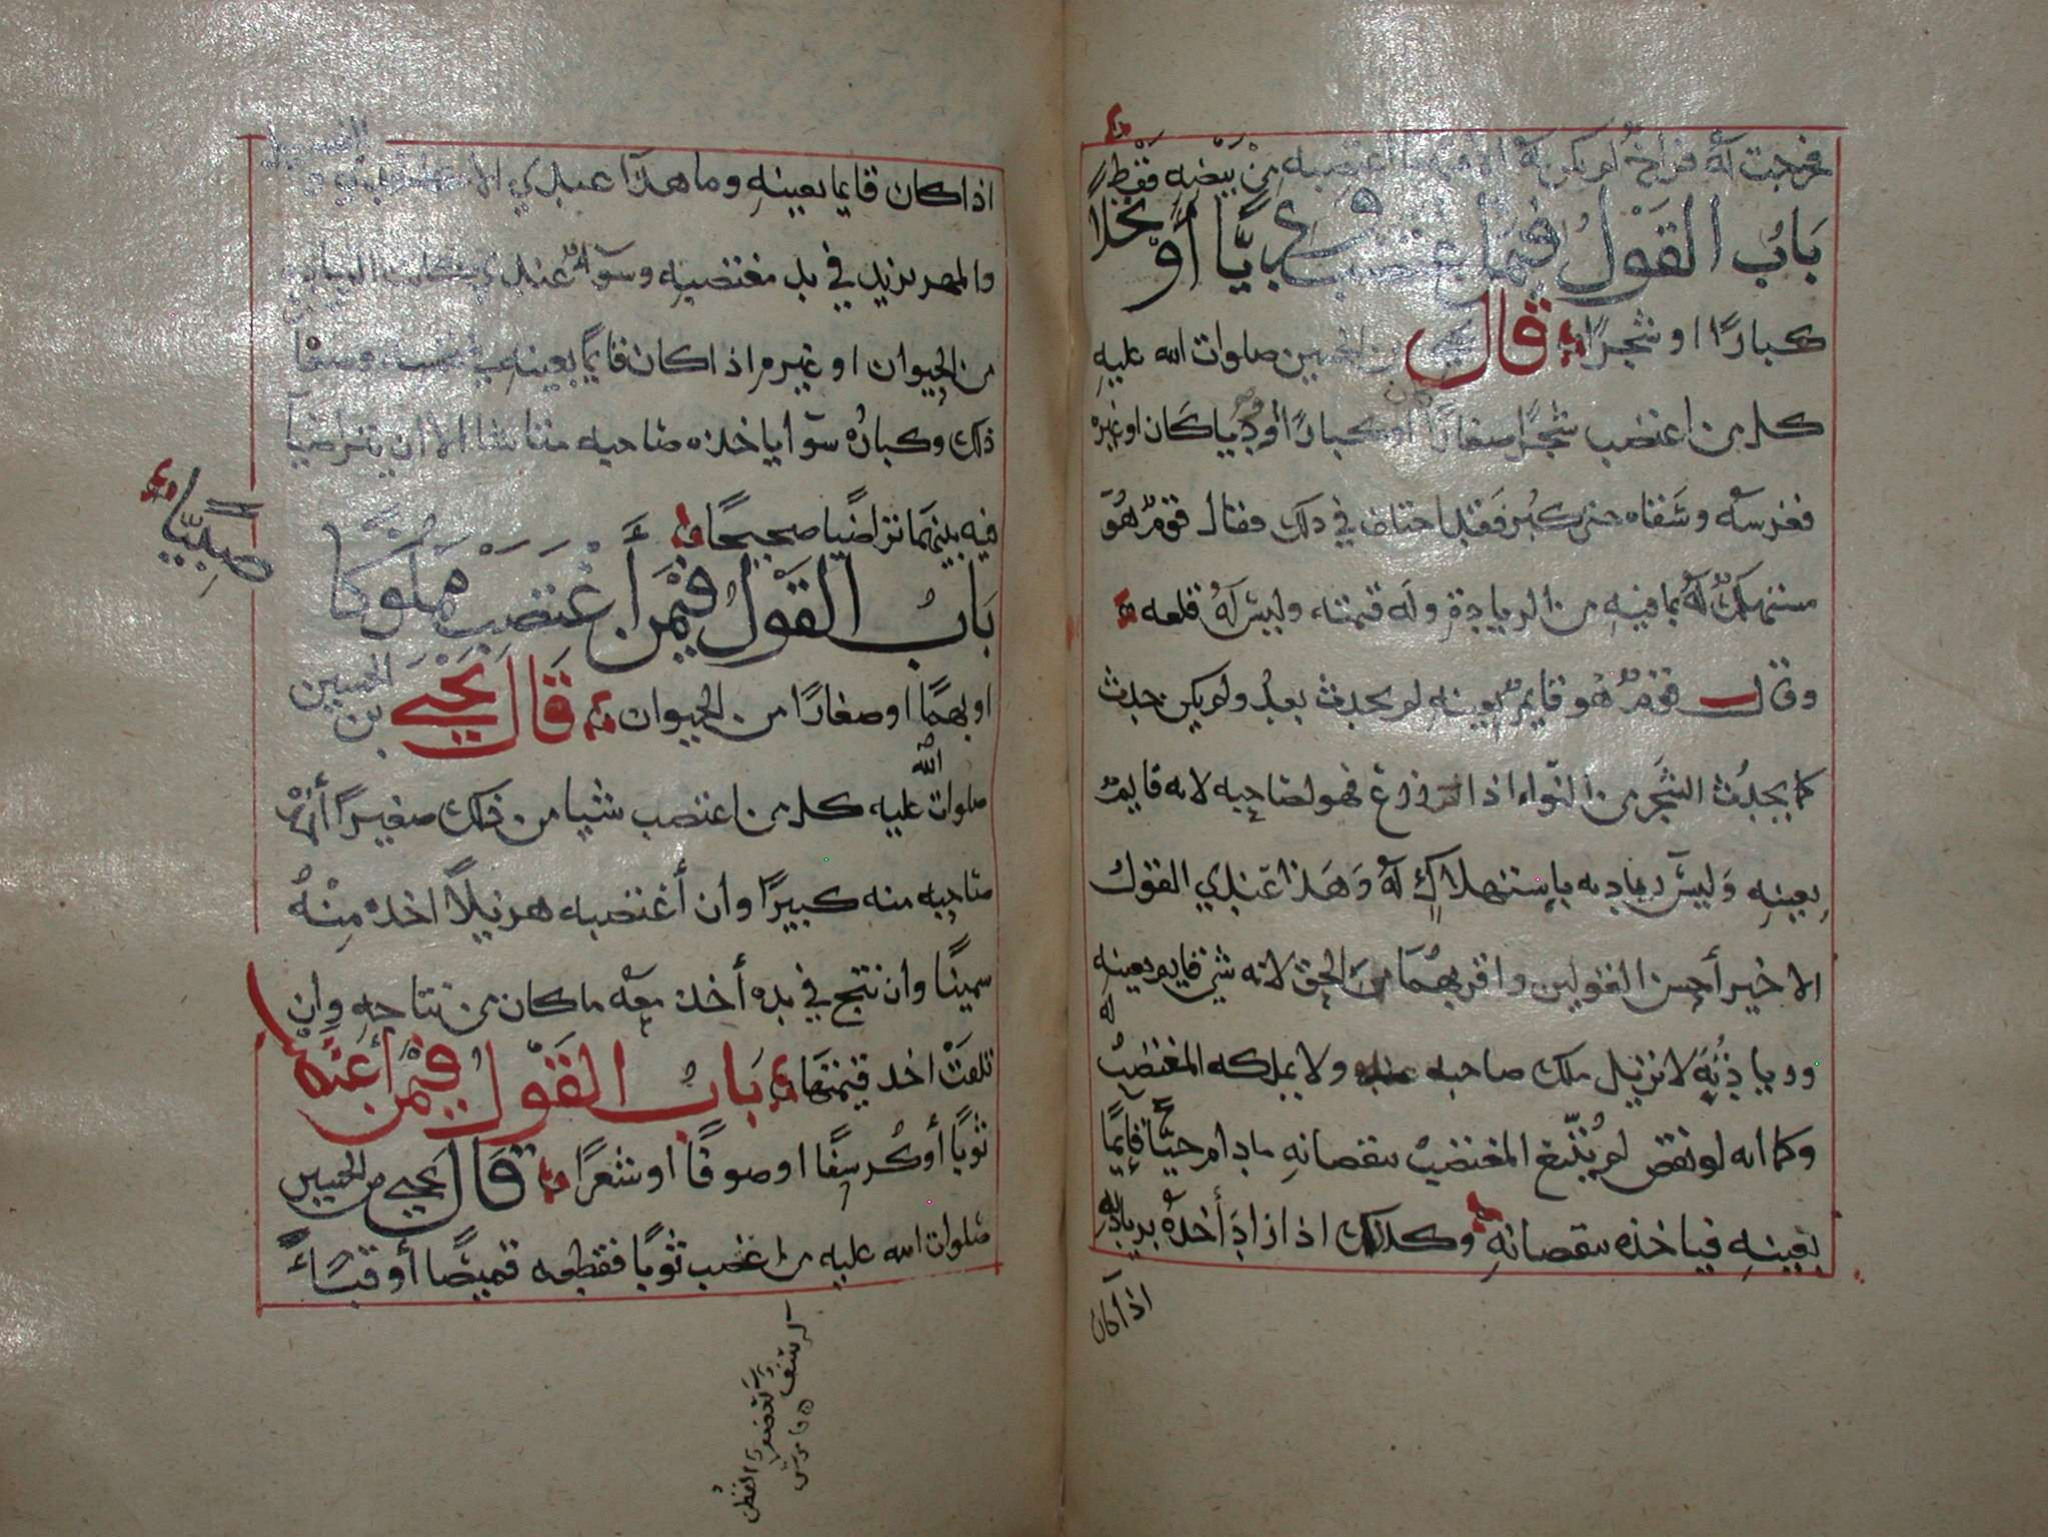 فخرجت له فراخ لم يكن له الا ما اغتصبه من بيضه فقط
بَابُ القَوْلُ فيمن اغتصب وديًّا أو نخلًا
كبارًا او شجرًا قال يحيى بن الحسين صلوات الله عليه
كل من اغتصب شجرًا صغارًا او كبارًا او وديا كان او غيره
فغرسه وسقاه حتى كبُر فقد اختلف في ذلك فقال قومٌ هُوَ
مستهلكٌ لَهُ بما فيه من الزيادة وله قيمته وليس لَهُ قلعه
وقال قومٌ هُو قايمٌ بعينهِ لم يحدث بعدُ ولم يكن حدث
كما يحدُث الشجر من النواء اذا زرع فهو لصاحبه لانه قايمٌ
بعينهِ وَليسَ زيادته باستهلاكٍ لَهُ وَهَذا عندي القول
الاخير أحسن القولين واقربهُمَا من الحق لانه شي قايم بعينهِ له
وزيادتُه لا تزيل ملك صاحبه عنه ولا يملكه المغتصِبُ
وكما انه لو نقص لم يُتْبَع المغتصب بنقصانهِ مادام حيًّا قايمًا
بعينهِ فياخذه بنقصانهِ وكذلك اذا زادَ أخذهُ بزيادته
اذا كان
اذا كان قايما بعينهِ وما هذا عندي الا
والمهر يزيد في يد مغتصبهِ وسَوآءٌ عندي
من الحيوان او غيره اذا كان قايمًا بعينهِ
ذلك وكبارُه سوآ ياخذه صاحبه متى شا الا ان يتراضيَا
فيه بينهمَا تراضيًا صحيحًا
بَابُ القَوْلُ فيمَن أَغتَصِبَ مملوكًا
صبيًّا
او بهمًا او صغارًا من الحيوان قَالَ يَحْيَى بن الحسين
صلوات الله عليه كل من اغتصب شيا من ذلك صغيرًا أخذه
صاحبه منه كبيرًا وان أغتصبه هزيلًا اخذه مِنْهُ
سمينًا وان نتج في يده أخذ معه ما كان من نتاجهِ وان
تلفَتْ اخذ قيمتهَا بَابُ القَوْلُ فيمن أغتصب
ثوبًا أو كُرسفًا او صوفًا او شعرًا قَالَ يحيى بن الحسين
صلوات الله عليه من اغتصب ثوبًا فقطعه قميصًا أو قبآءً
كرسف
القطن
قاموس